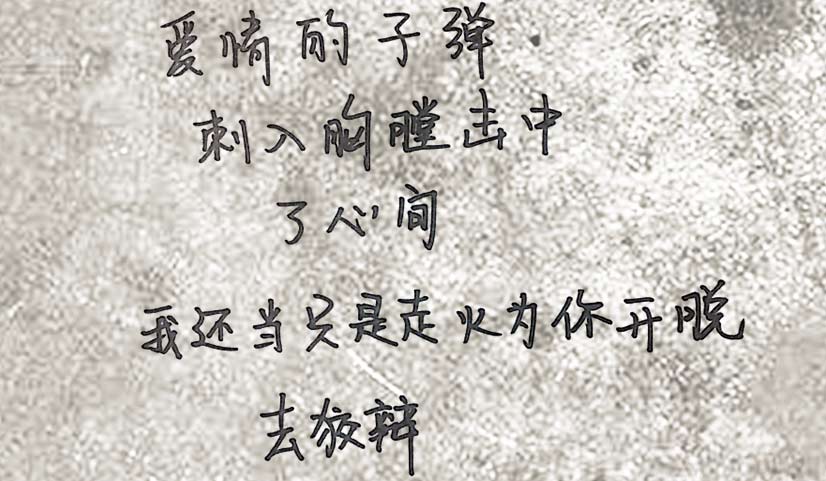 爱情的子弹
刺入胸膛击中
了心间
我还当只是走火为你开脱
去狡辩